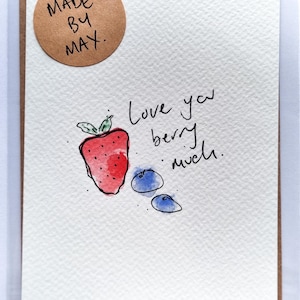 MADE
BY
MAX.
Love you
berry
much.